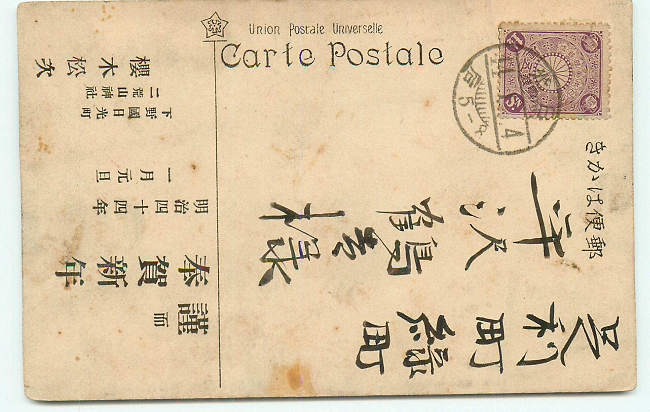 Union Postale Universelle
Carte Postale
きかは便郵
足利町緑町
様
謹而
奉賀新年
明治四十四年
一月元旦
下野國日光町
二荒山神社
櫻木松次